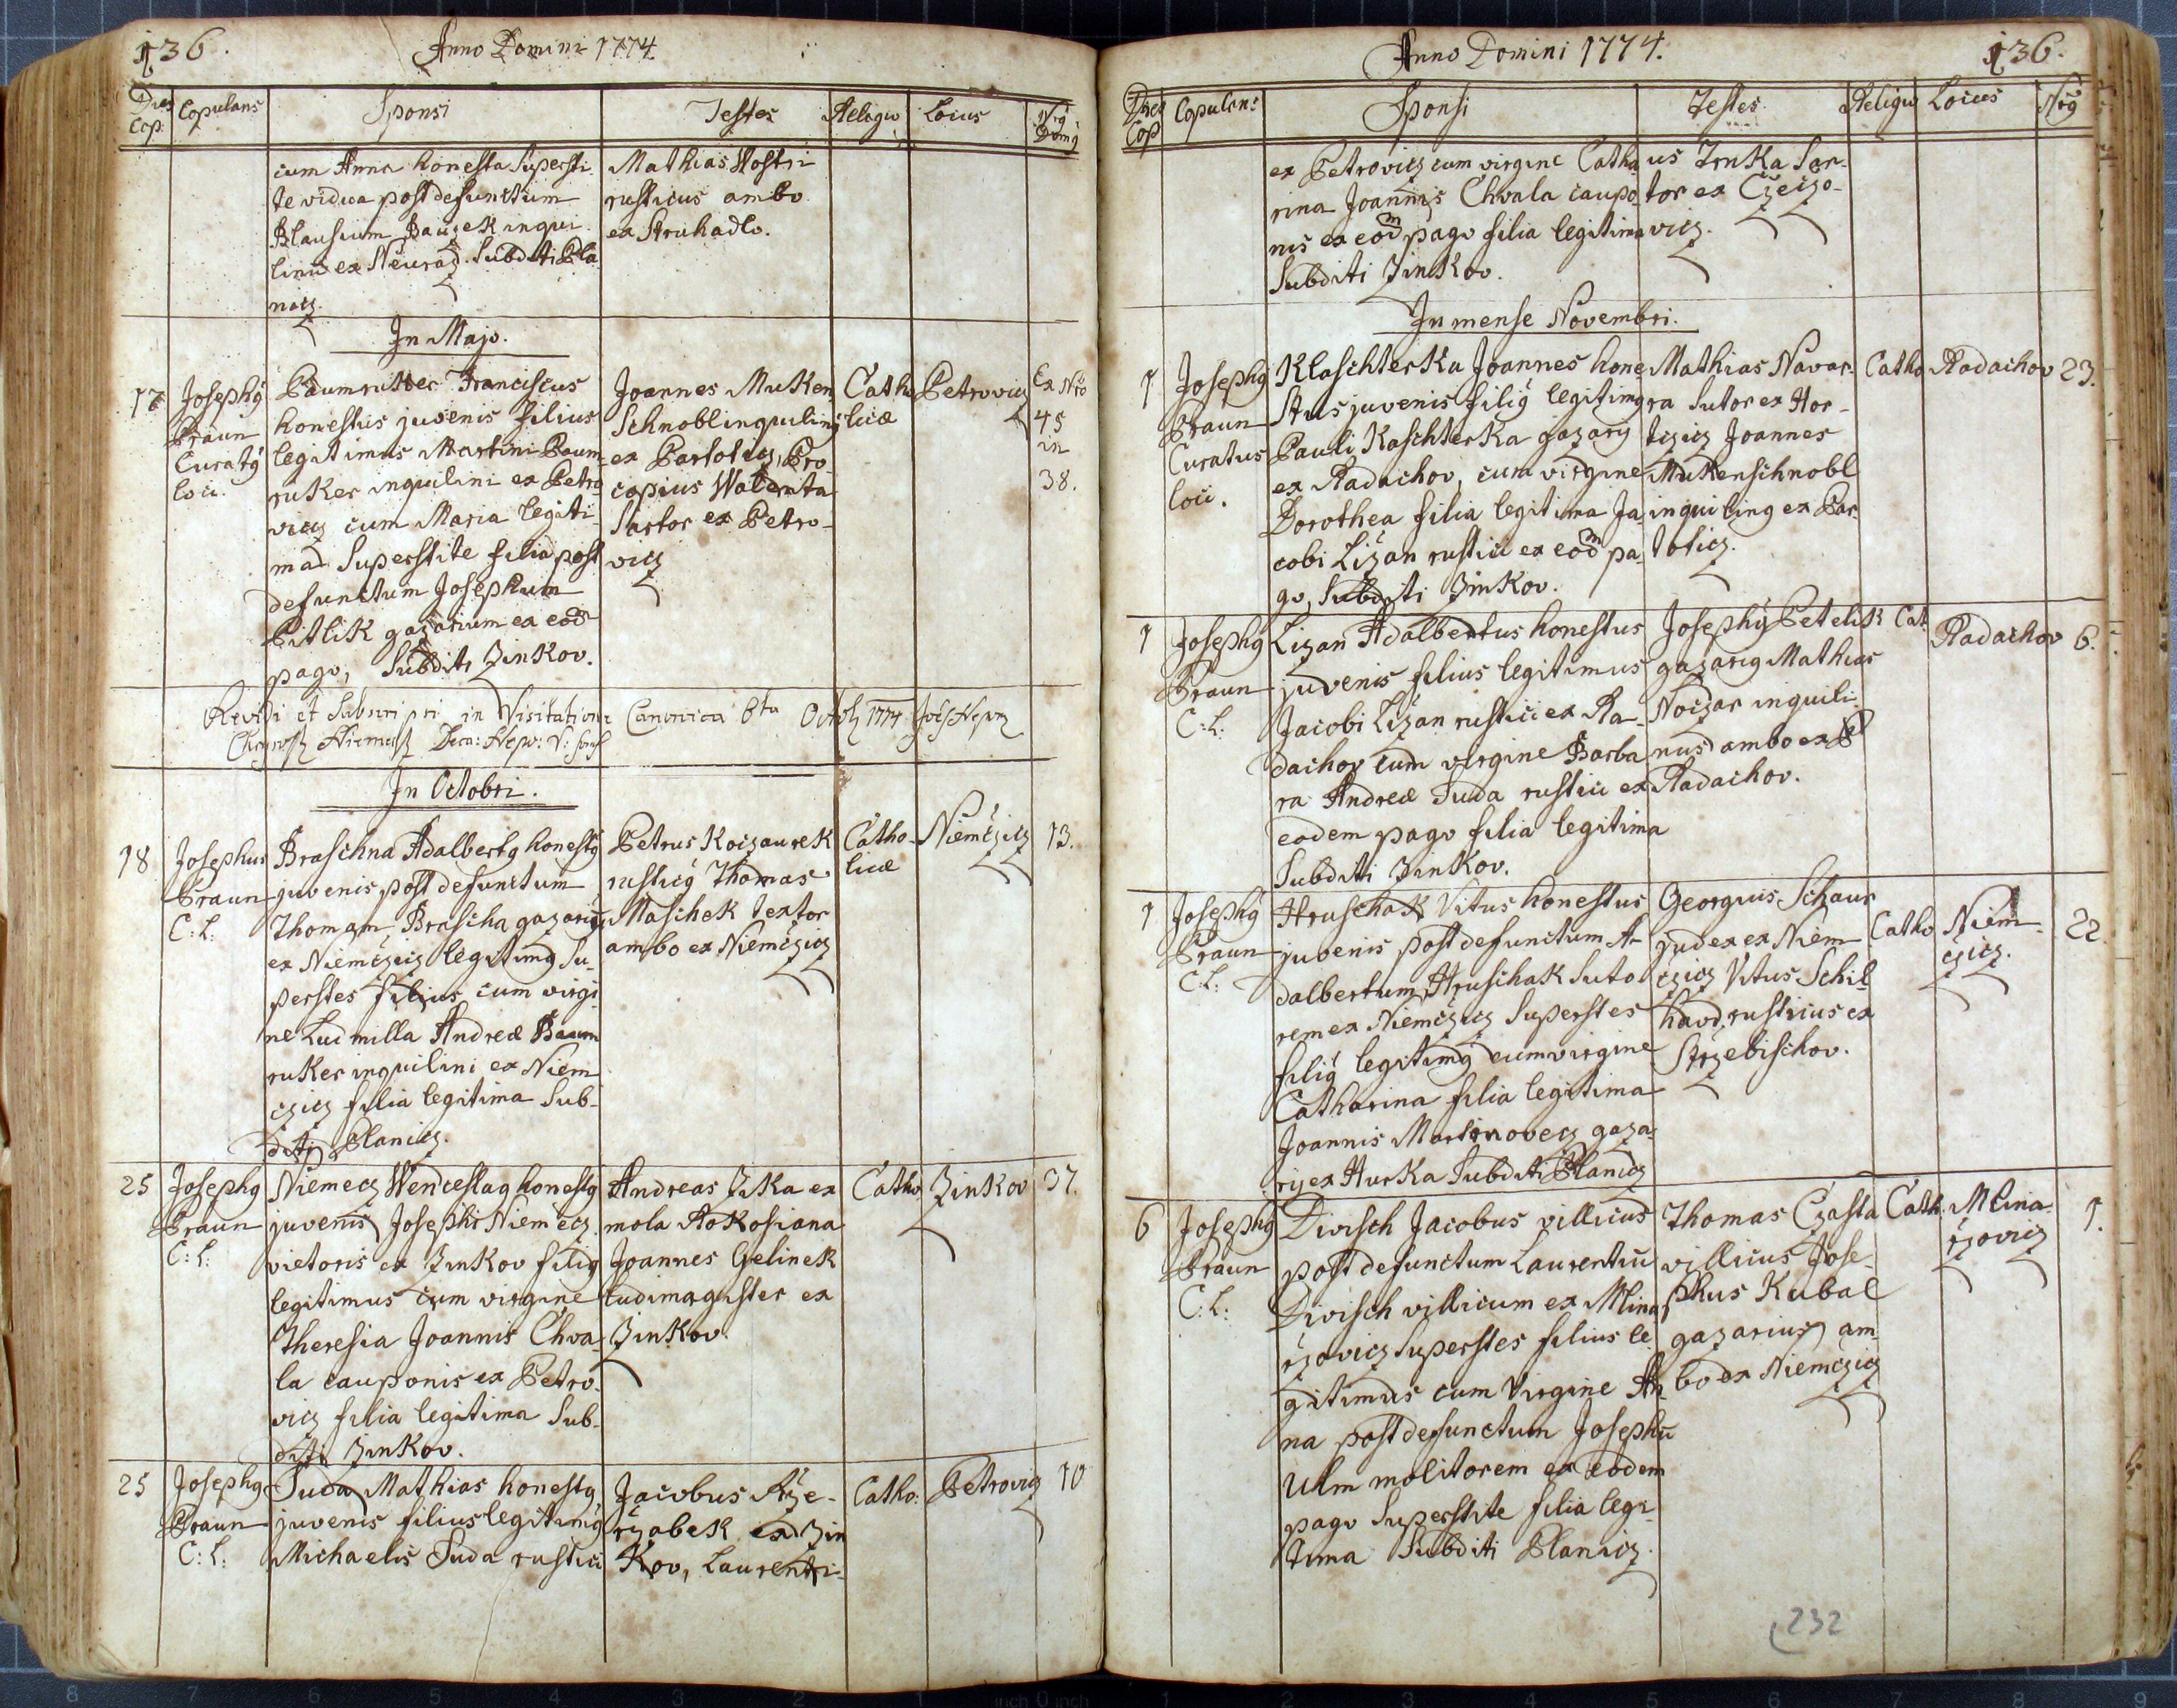 136. Anno Domini 1774.
Dies Cop. Copulans Sponsi Testes Religio Locus Nrg Domg
cum Anna honesta Supersti-
te vidua post defunctum
Blausium Bauzek inqui-
linu ex Neuraz. Subditi Pla
nicz.
Mathias Wostri
rusticus ambo
ex Struhadlo.
In Majo.
17
Josephg
Praun
Curatg
loci.
Paumruker Franciscus
honestus juvenis filius
legitimus Martini Paum-
ruker inquilini ex Petro
vicz cum Maria legiti-
mad Superstite filia post
defunctum Josephum
Pitlik gazarium ex eod
pago, Subditi Zinkov.
Joannes Muken
Schnobl inquiling
ex Partoticz, Pro-
copius Wodenita
Sartor ex Petro-
vicz
Catho
licæ
Petrovicz
Ex Nro
45
in
38.
Revidi et Subscripsi in Visitatione Canonica 6ta Octob 1774
In Octobri.
18
Josephus
Praun
C: L:
Braschna Adalbertg honestg
juvenis post defunctum
Thomam Brascha gazariu
ex Niemczicz legitimg Su-
perstes filius cum virgi-
ne Ludmilla Andreæ Baum
ruker inquilini ex Niem
czicz filia legitima Sub-
diti Planicz.
Petrus Koczaurek
rusticg Thomas
Maschek textor
ambo ex Niemczicz
Catho-
licæ
Niemczicz
13.
25
Josephg
Praun
C: L:
Niemecz Wenceslag honestg
juvenis Josephi Niemecz
vietoris ex Zinkov filig
legitimus cum virgine
Theresia Joannis Chva-
la cauponis ex Petro-
vicz filia legitima Sub-
diti Zinkov.
Andreas Zika ex
mola Rokosiana
Joannes Gelinek
ludimagister ex
Zinkov.
Catho
Zinkov
37.
25
Josephg
Praun
C: L:
Suda Mathias honestg
juvenis filius legitimg
Michaelis Suda rustici
Jacobus Rze-
rzabek ex Zin
Kov, Laurenti-
Catho:
Petrovicz
10
Anno Domini 1774. 136.
Dies Cop Copulens Sponsi Testes Religio Locus Nrg
ex Petrovicz cum virgine Catha
rina Joannis Chvala caupo-
nis ex eodm pago filia legitima
Subditi Zinkov.
us Trnka Sar-
tor ex Czeczo-
vicz.
In mense Novembri.
1
Josephg
Praun
Curatus
loci.
Klaschterka Joannes hone-
stus juvenis filig legitimg
Pauli Kaschterka gazarij
ex Radachov, cum virgine
Dorothea filia legitima Ja-
cobi Lizan rustici ex eodm pa-
go, Subditi Zinkov.
Mathias Navar-
ra Sutor ex Hor-
tczicz Joannes
Mukenschnobl
inquiling ex Par-
toticz.
Catho
Radachov
23.
1
Josephg
Praun
C: L:
Lizan Adalbertus honestus
juvenis filius legitimus
Jacobi Lizan rustici ex Ra-
dachov cum virgine Barba
ra Andreæ Suda rustici ex
eodem pago filia legitima
Subditi Zinkov.
Josephg Petelik
gazarig Mathias
Noczar inquili-
nus ambo ex
Radachov.
Cat.
Radachov
6.
1
Josephg
Praun
C: L:
Hruschak Vitus honestus
juvenis post defunctum A-
dalbertum Hruschak Suto
rem ex Niemczicz Superstes
filig legitimg cum virgine
Catharina filia legitima
Joannis Martinovecz gaza-
rij ex Hurka Subditi Planicz
Georgius Schaur
judex ex Niem
czicz Vitus Schil
havd rusticus ex
Strzebischov.
Catho
Niem-
czicz.
22
6
Josephg
Praun
C: L:
Divisch Jacobus villicus
post defunctum Laurentiu
Divisch villicum ex Mlina
rzovicz Superstes filius le
gitimus cum Virgine An
na post defunctum Josephu
Ulm molitorem ex eodem
pago Superstite filia legi-
tima Subditi Planicz.
Thomas Czasta
villicus Jose-
phus Kubal
gazarius am-
bo ex Niemczicz
Cath.
Mlina-
rzovicz
1.
232